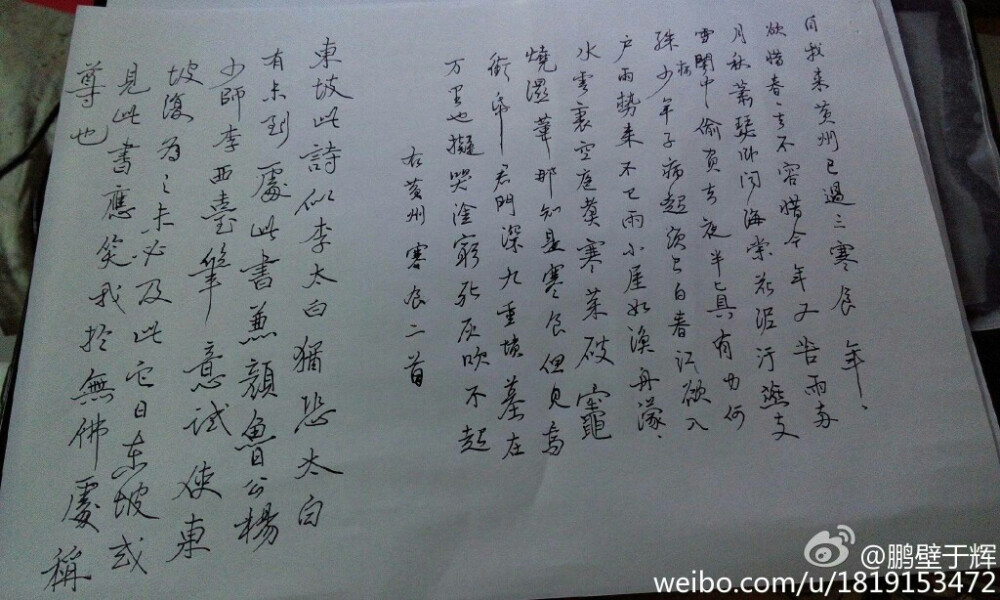 自我来黄州已過三寒食年、
欲惜春、去不容惜今年又苦雨两
月秋萧瑟卧闻海棠花泥汙燕支
雪闇中偷负去夜半真有力何
殊病少年子病起须已白春江欲入
户雨势来不已雨小屋如渔舟濛、
水雲裏空庖煮寒菜破竈
燒濕葦那知是寒食但见烏
銜帋君門深九重墳墓在
万里也擬哭塗窮死灰吹不起
右黄州寒食二首
東坡此詩似李太白猶恐太白
有未到處此書兼顔魯公楊
少師李西臺筆意試使東
坡復為之未必及此它日东坡或
見此書應笑我於無佛處稱
尊也
@鹏壁于辉
weibo.com/u/1819153472